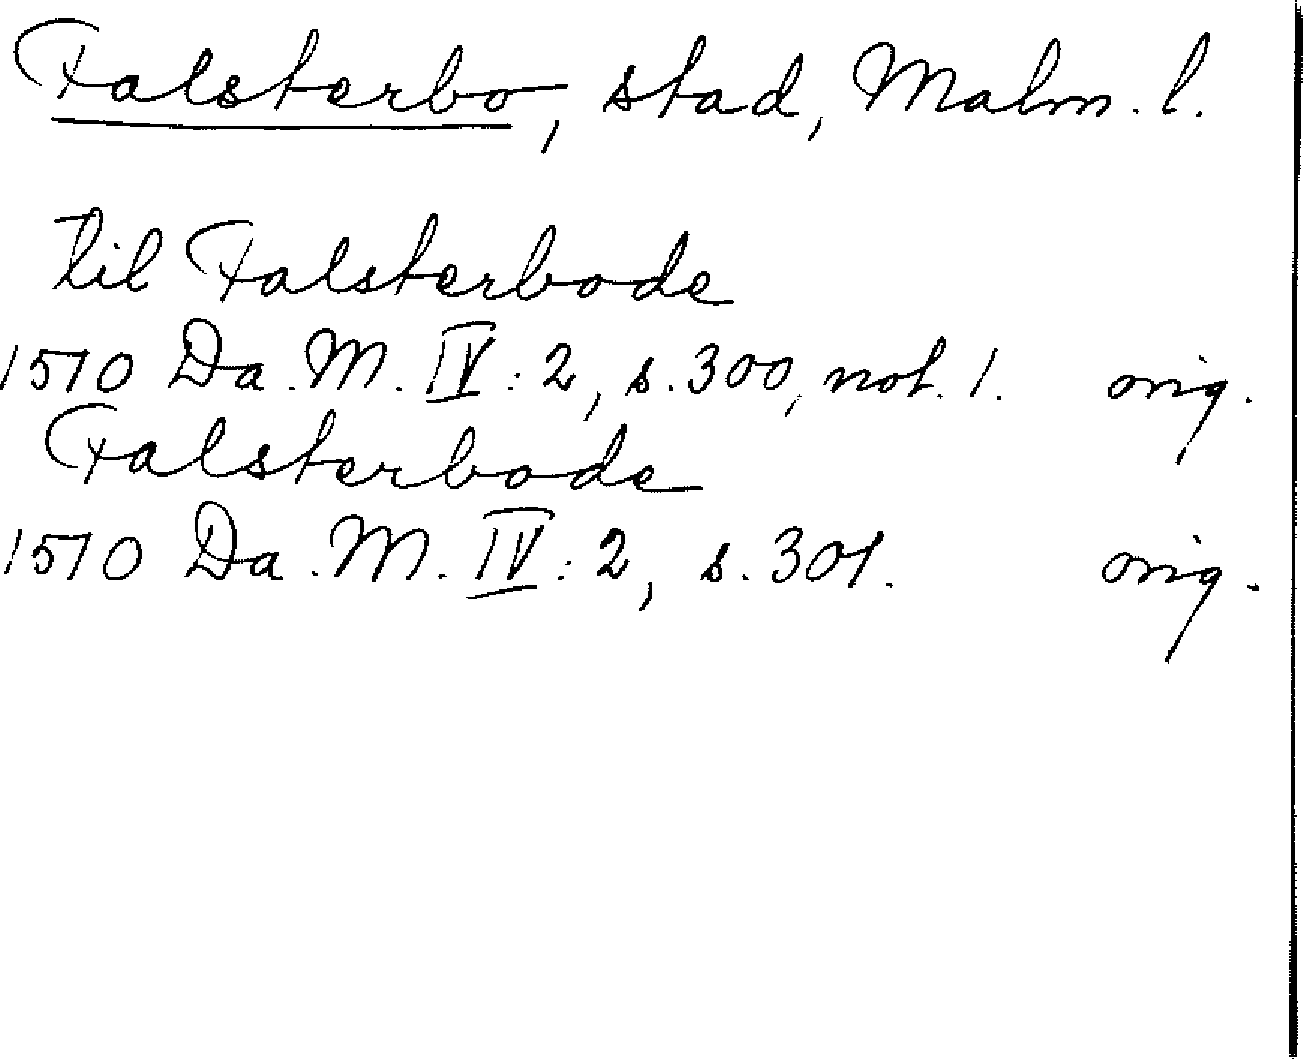 Falsterbo, stad, Malm. l.
til Falsterbode
1510 Da. M. IV: 2, s. 300, not. 1. orig.
Falsterbode
1510 Da. M. IV: 2, s. 301. orig.